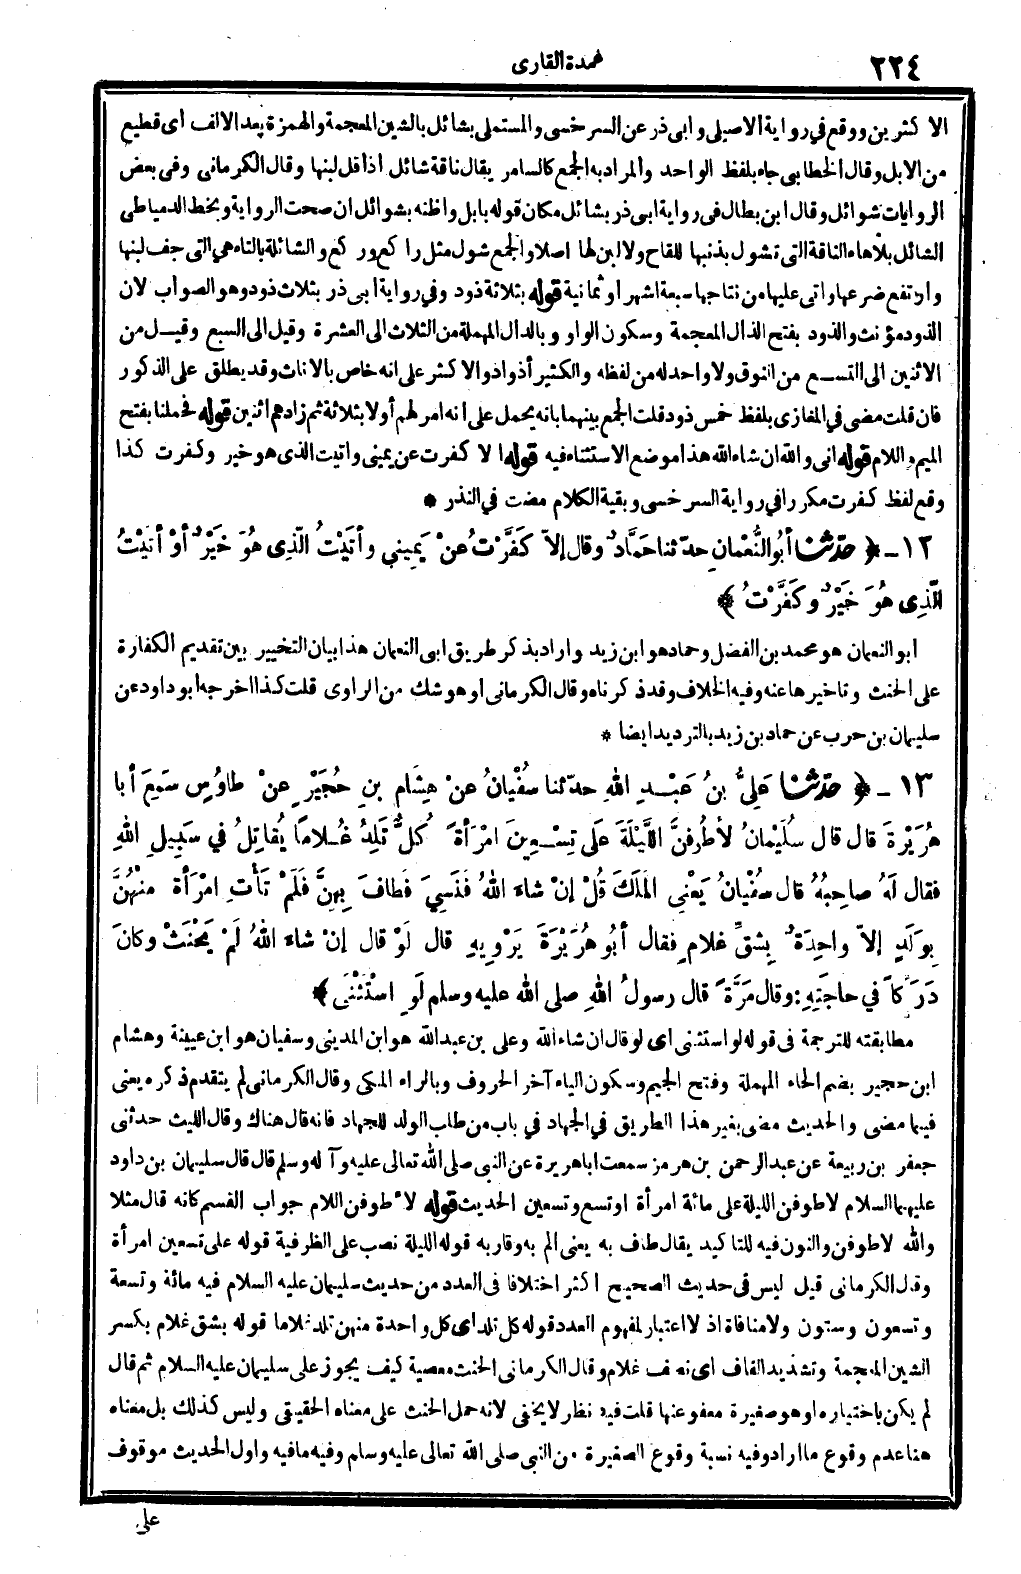 ٢٢٤
عمدة القارى
الاكثرين ووقع في رواية الاصيلى وابى ذر عن السرخسى والمستملى بشائل بالشين المعجمة والهمزة بعد الالف اى قطيع
من الابل وقال الخطابى جاء بلفظ الواحد والمراد به الجمع كالسامر يقال ناقة شائل اذا قل لبنها وقال الكرمانى وفى بعض
الروايات شوائل وقال ابن بطال فى رواية ابى ذر بشائل مكان قوله بابل واظنه بشوائل ان صحت الرواية وبخط الدمياطى
الشائل بلاهاء الناقة التى تشول بذنبها للقاح ولا لبن لها اصلا والجمع شول مثل راكع وركع والشائلة بالتاء هى التى جف لبنها
وارتفع ضرعها واتى عليها من نتاجها سبعة اشهر او ثمانية قوله بثلاثة ذود وفي رواية ابى ذر بثلاث ذود وهو الصواب لان
الذود مؤنث والذود بفتح الذال المعجمة وسكون الواو وبالدال المهملة من الثلاث الى العشرة وقيل الى السبع وقيل من
الاثنين الى التسع من النوق ولا واحد له من لفظه والكثير أذواد والاكثر على انه خاص بالاناث وقد يطلق على الذكور
فان قلت مضى في المغازى بلفظ خمس ذود قلت الجمع بينهما بانه يحمل على انه امر لهم أولا بثلاثة ثم زادهم اثنين قوله فحملنا بفتح
الميم واللام قوله انى والله ان شاء الله هذا موضع الاستثناء فيه قوله الا كفرت عن يمينى واتيت الذى هو خير وكفرت كذا
وقع لفظ كفرت مكررا في رواية السرخسى وبقية الكلام مضت في النذر *
١٢ - ﴿ حدّثنا أبُو النُّعْمانِ حدّثنا حَمَّادٌ وقال إلاَّ كَفَّرْتُ عنْ يَمِيني وأتَيْتُ الَّذِى هُوَ خَيْرٌ أوْ أتَيْتُ
الَّذِى هُوَ خَيْرٌ وكَفَّرْتُ ﴾
ابو النعمان هو محمد بن الفضل وحماد هو ابن زيد واراد بذكر طريق ابى النعمان هذا بيان التخيير بين تقديم الكفارة
على الحنث وتاخيرها عنه وفيه الخلاف وقد ذكرناه وقال الكرمانى او هو شك من الراوى قلت كذا اخرجه ابو داود عن
سليمان بن حرب عن حماد بن زيد بالترديد ايضا *
١٣ - ﴿ حدّثنا عَلِيُّ بنُ عَبْدِ اللهِ حدّثنا سُفْيانُ عنْ هِشَامِ بنِ حُجَيْرٍ عنْ طاوُسٍ سَمِعَ أبا
هُرَيْرةَ قال قال سُلَيْمانُ لأَطُوفَنَّ اللَّيْلَةَ عَلَى تِسْعِينَ امْرَأةً كُلٌّ تَلِدُ غُلاماً يُقاتِلُ في سَبِيلِ اللهِ
فقال لَهُ صاحِبُهُ قال سُفْيانُ يَعْنِي المَلَكَ قُلْ إنْ شاءَ اللهُ فَنَسِيَ فَطافَ بِهِنَّ فَلَمْ تَأْتِ امْرَأةٌ مِنْهُنَّ
بِوَلَدٍ إلاَّ واحِدَةٌ بِشِقِّ غلامٍ فقال أبُو هُرَيْرَةَ يَرْوِيهِ قال لَوْ قال إنْ شاءَ اللهُ لَمْ يَحْنَثْ وكانَ
دَرَكاً في حاجَتِهِ: وقال مَرَّةً قال رسولُ اللهِ صلى الله عليه وسلم لَوِ اسْتَثْنَى ﴾
مطابقته للترجمة فى قوله لو استثنى اى لو قال ان شاء الله وعلى بن عبد الله هو ابن المدينى وسفيان هو ابن عيينة وهشام
ابن حجير بضم الحاء المهملة وفتح الجيم وسكون الياء آخر الحروف وبالراء المكى وقال الكرمانى لم يتقدم ذكره يعنى
فيما مضى والحديث مضى بغير هذا الطريق في الجهاد في باب من طلب الولد للجهاد فانه قال هناك وقال الليث حدثنى
جعفر بن ربيعة عن عبد الرحمن بن هرمز سمعت ابا هريرة عن النبى صلى الله تعالى عليه وآله وسلم قال قال سليمان بن داود
عليهما السلام لاطوفن الليلة على مائة امرأة او تسع وتسعين الحديث قوله لاطوفن اللام جواب القسم كانه قال مثلا
والله لاطوفن والنون فيه للتاكيد يقال طاف به يعنى الم به وقاربه قوله الليلة نصب على الظرفية قوله على تسعين امرأة
وقال الكرمانى قيل ليس فى حديث الصحيح اكثر اختلافا فى العدد من حديث سليمان عليه السلام فيه مائة وتسعة
وتسعون وستون ولا منافاة اذ لا اعتبار لمفهوم العدد قوله كل تلد اى كل واحدة منهن تلد غلاما قوله بشق غلام بكسر
الشين المعجمة وتشديد القاف اى نصف غلام وقال الكرمانى الحنث معصية كيف يجوز على سليمان عليه السلام ثم قال
لم يكن باختياره او هو صغيرة معفو عنها قلت فيه نظر لا يخفى لانه حمل الحنث على معناه الحقيقى وليس كذلك بل معناه
هنا عدم وقوع ما اراد وفيه نسبة وقوع الصغيرة من النبى صلى الله تعالى عليه وسلم وفيه ما فيه واول الحديث موقوف
على